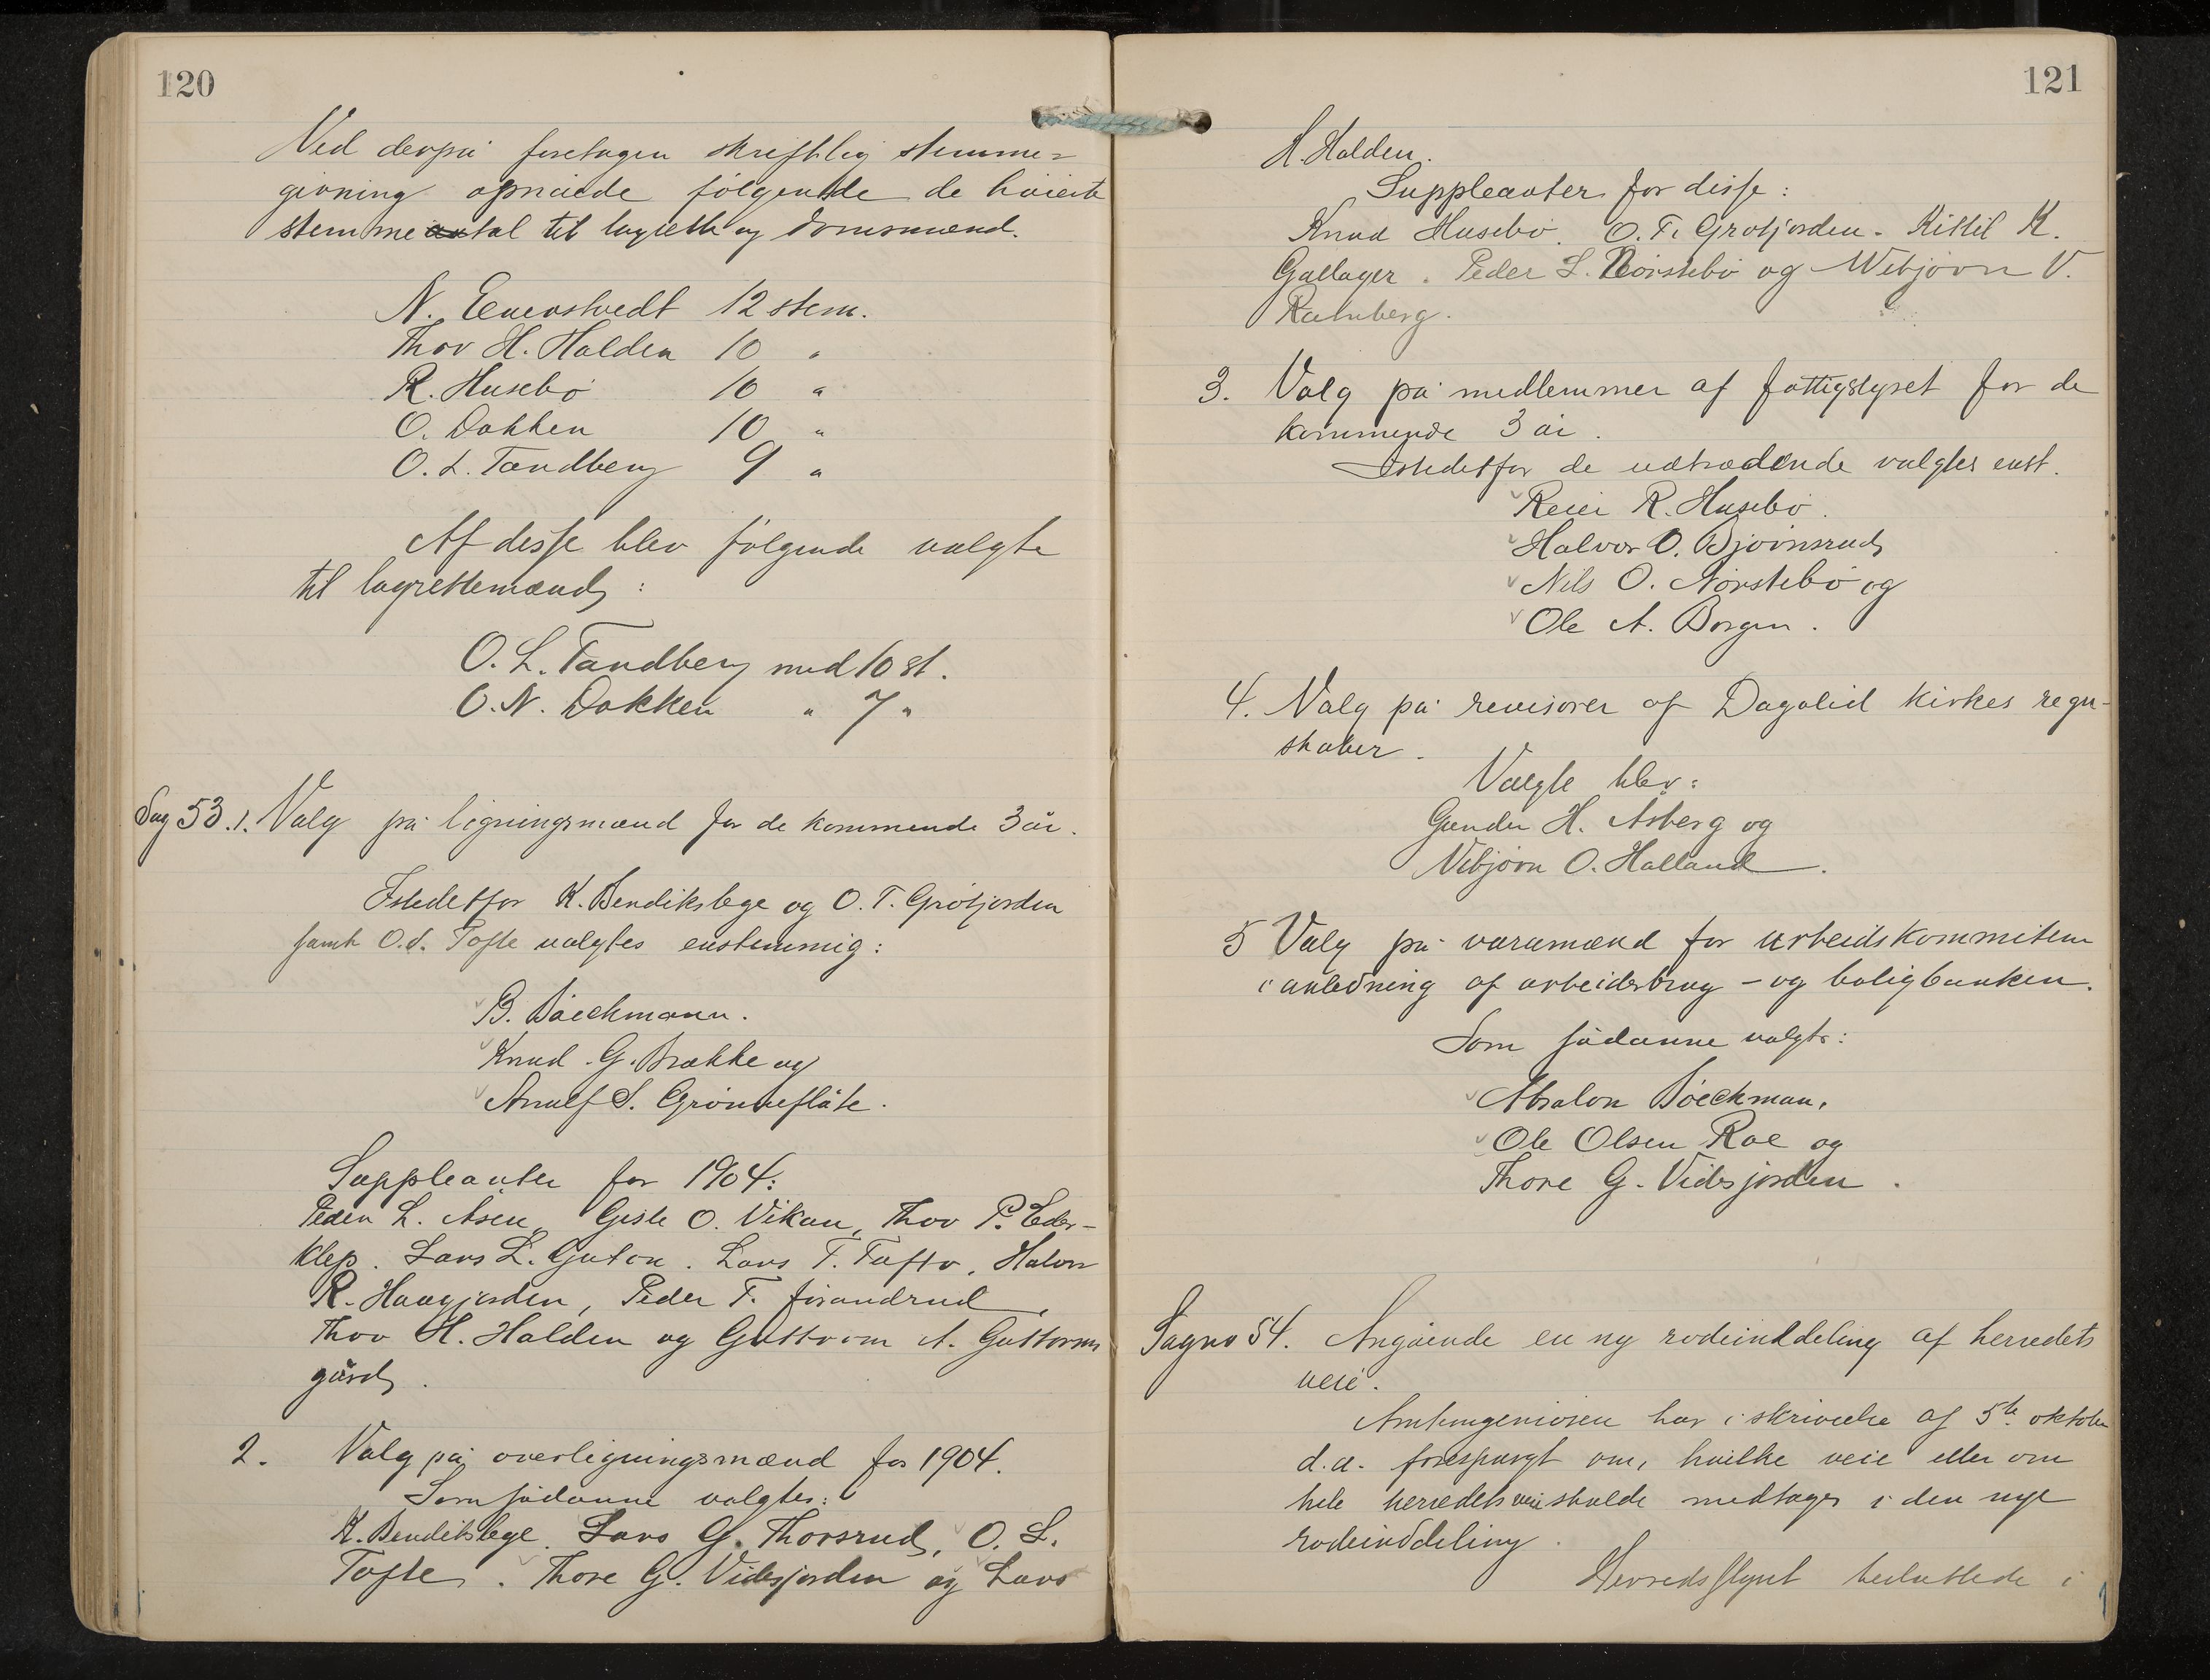 120
Ved derpå foretagen skriftlig stemme=
givning opnåede følgende de høieste
stemmeantal til lagrette og domsmænd.
N. Evenstvedt 12 stem.
Thov H. Halden 10 "
R. Husebø 10 "
O. Dokken 10 "
O. L. Tandberg 9 "
Af disse blev følgende valgte
til lagrettemænd:
O. L. Tandberg med 10 st.
O. N. Dokken " 7 "
Sag 53. 1. Valg på ligningsmænd for de kommende 3 år.
Istedetfor K. Bendikslege og O. T. Grøtjorden
samt O. L. Tofte valgtes enstemmig:
B. Bøeckmann.
Knud G. Brække og
Arnulf S. Grønneflåte.
Suppleanter for 1904:
Peder L. Åsen, Gisle O. Vikan, Thov P. Eder-
klep. Lars L. Guton. Lars T. Tufto, Halvor
R. Haugjorden, Peder T. Jørandrud,
Thov H. Halden og Guttorm A. Guttorms
gård.
2. Valg på overligningsmænd for 1904.
Som sådanne valgtes:
K. Bendikslege. Lars G. Thorsrud, O. L.
Tofte. Thore G. Vidsjorden og Lars
121
H. Halden.
Suppleanter for disse:
Knud Husebø. O. T. Grøtjorden. Kittil K.
Gallager. Peder L. Nørstebø og Vebjørn V.
Ramberg.
3. Valg på medlemmer af fattigstyret for de
kommende 3 år.
Istedetfor de udtrædende valgtes enst.
Reier R. Husebø.
Halvor O. Bjørnsrud,
Nils O. Nørstebø og
Ole A. Borgen.
4. Valg på revisorer af Dagalid kirkes regn-
skaber.
Valgte blev:
Gunder H. Åsberg og
Vebjørn O. Halland.
5 Valg på varamænd for arbeidskommiteen
i anledning af arbeiderbrug – og boligbanken.
Som sådanne valgtes:
Absalon Bøeckman,
Ole Olsen Roe og
Thore G. Vidsjorden.
Sagno 54. Angående en ny rodeinddeling af herredets
veie.
Amtsingeniøren har i skrivelse af 5te oktober
d.a. forespurgt om, hvilke veie eller om
hele herredets veie skulde medtages i den nye
rodeinddeling.
Herredsstyret besluttede i